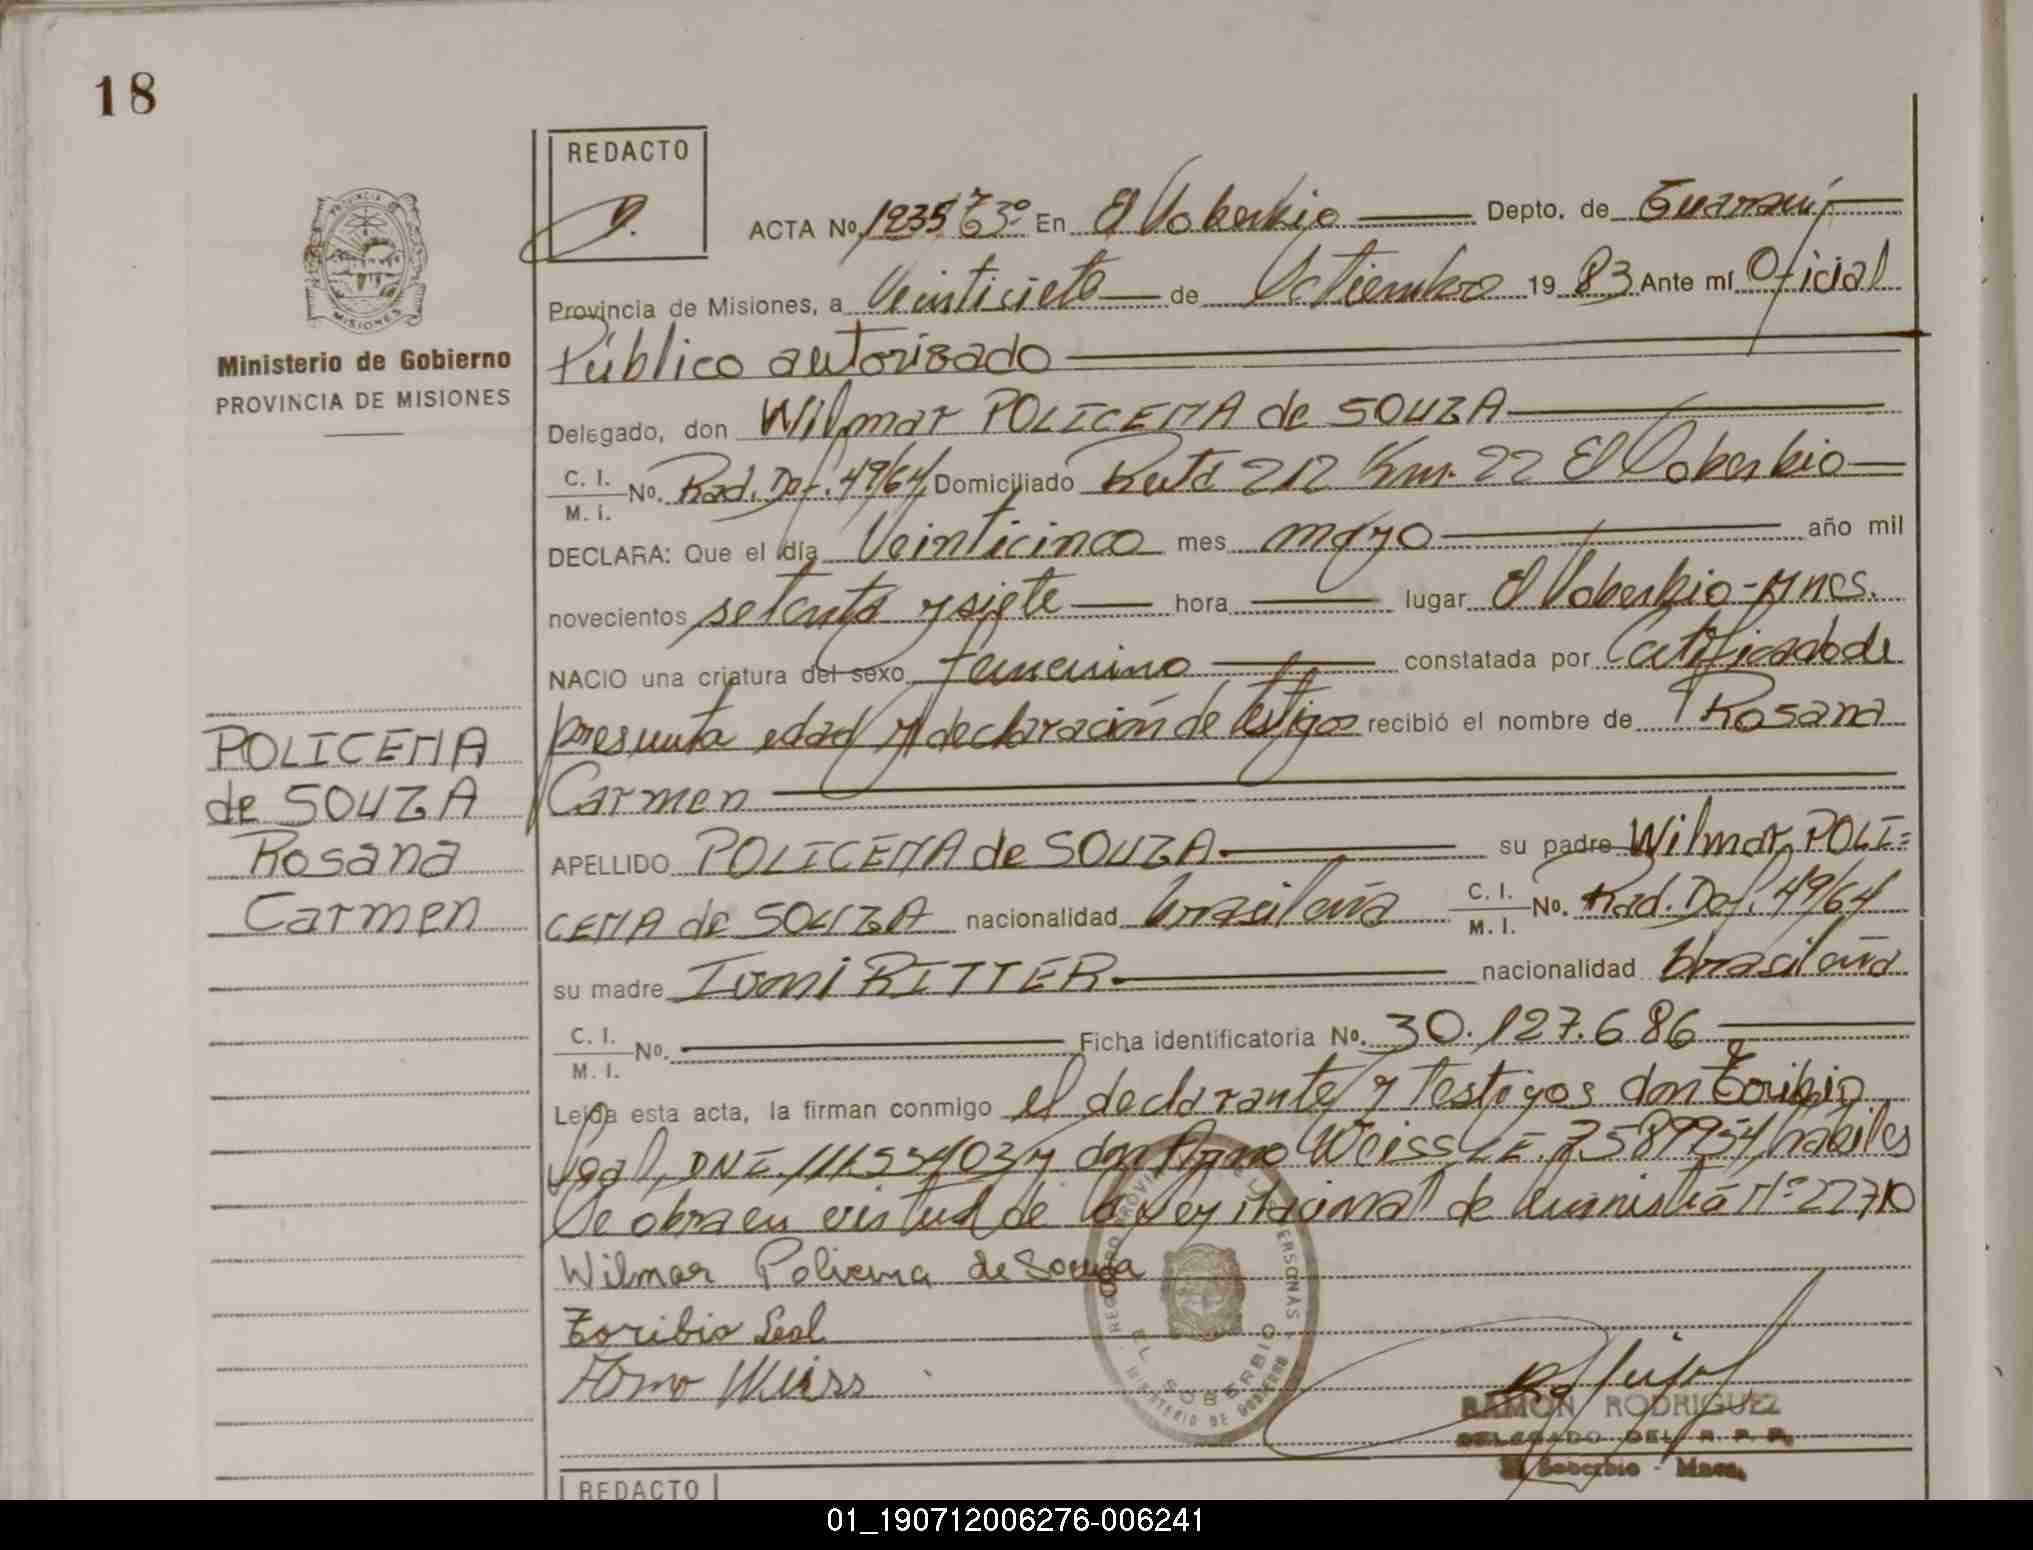 18
REDACTO
ACTA No. 1235 T 63º En El Soberbio Depto. de Guaraní
Provincia de Misiones, a Veintisiete de Octiembre 19 83 Ante mí Oficial
Público autorizado
Ministerio de Gobierno
PROVINCIA DE MISIONES
Delegado, don Wilmar POLICENA de SOUZA
C. I. / M. I. No. Rad. Def. 49/64 Domiciliado Ruta 212 Km. 22 El Soberbio
DECLARA: Que el día Veinticinco mes mayo año mil
novecientos setenta y siete hora lugar El Soberbio-Mnes.
NACIO una criatura del sexo femenino constatada por Certificado de
presunta edad y declaración de testigos recibió el nombre de Rosana
Carmen
POLICENA
de SOUZA
Rosana
Carmen
APELLIDO POLICENA de SOUZA su padre Wilmar POLI=
CENA de SOUZA nacionalidad brasileña C. I. / M. I. No. Rad. Def. 49/64
su madre Ivoni RITTER nacionalidad brasileña
C. I. / M. I. No. Ficha identificatoria No. 30.127.686
Leída esta acta, la firman conmigo el declarante y testigos don Toribio
Leal, DNI. y don Arno Weiss L.E. 7589954 habiles
Se obra en virtud de la Ley Nacional de Amnistía Nº 22710
Wilmar Policena de Souza
Toribio Leal
Arno Weiss
REGISTRO PROVINCIAL DE LAS PERSONAS
EL SOBERBIO
MINISTERIO DE GOBIERNO
RAMON RODRIGUEZ
DELEGADO DEL R. P. P.
El Soberbio - Mnes.
REDACTO
01_190712006276-006241